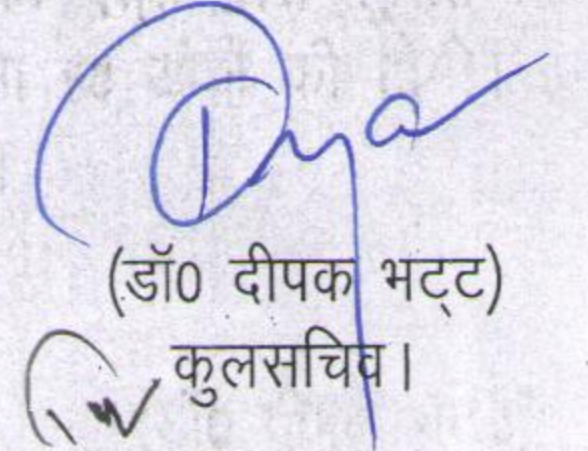 (डॉ0 दीपक भट्ट)
कुलसचिव।